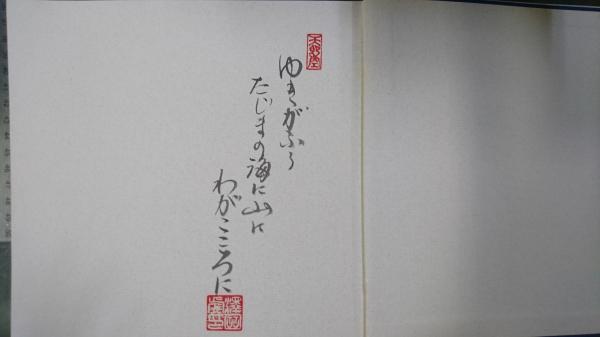 ゆきがふる
たじまの海に山に
わがこころに